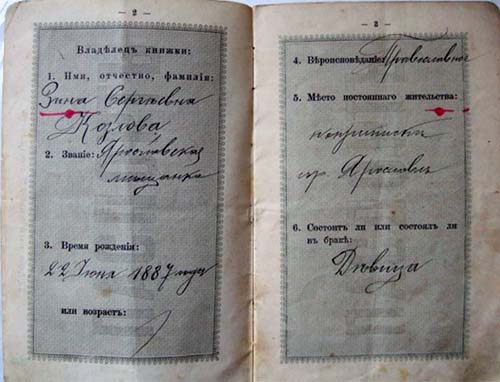 — 2 —
Владѣлецъ книжки:
1. Имя, отчество, фамилія:
Зина Сергѣевна
Козлова
2. Званіе: Ярославская
мѣщанка
3. Время рожденія:
22 Іюня 1887 года
или возрастъ:
4. Вѣроисповѣданіе: Православное
5. Мѣсто постояннаго жительства:
гор. Ярославль
6. Состоитъ ли или состоялъ ли
въ бракѣ:
Дѣвица